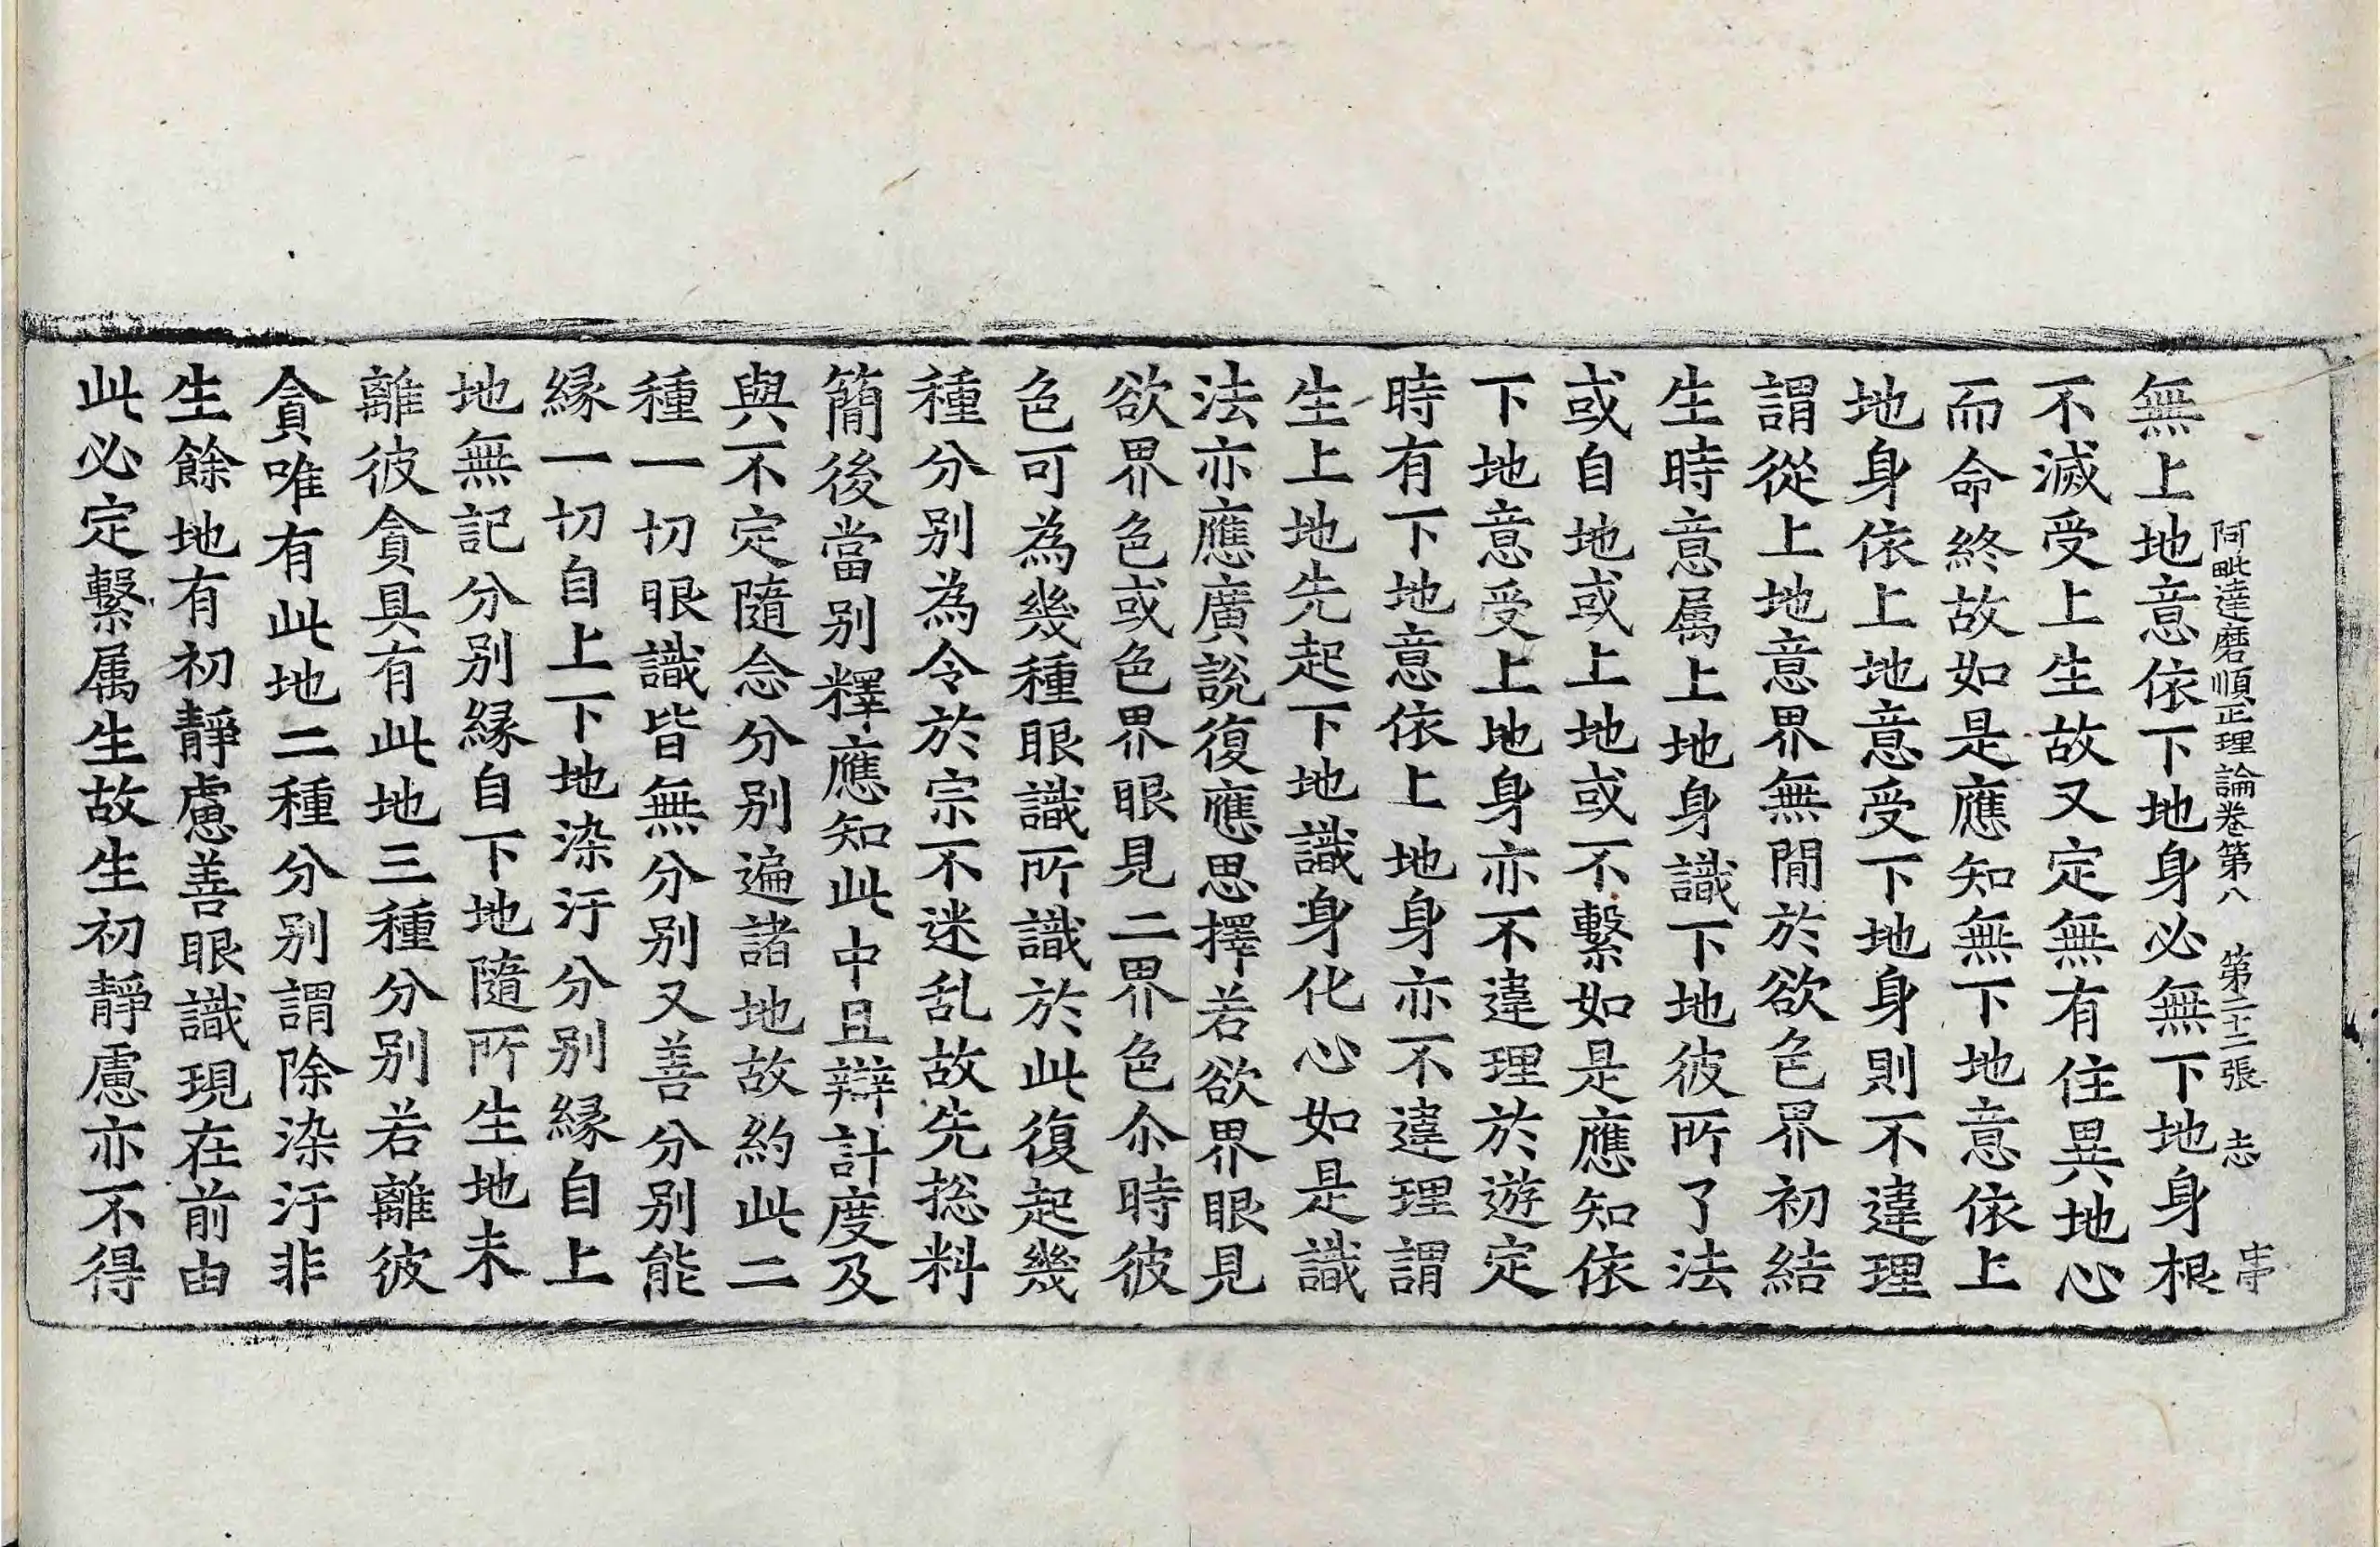 阿毗達磨順正理論卷第八　第二十二張　志
無上地意依下地身必無下地身根
不滅受上生故又定無有住異地心
而命終故如是應知無下地意依上
地身依上地意受下地身則不違理
謂從上地意界無間於欲色界初結
生時意属上地身識下地彼所了法
或自地或上地或不繫如是應知依
下地意受上地身亦不違理於遊定
時有下地意依上地身亦不違理謂
生上地先起下地識身化心如是識
法亦應廣說復應思擇若欲界眼見
欲界色或色界眼見二界色尒時彼
色可為幾種眼識所識於此復起幾
種分别為令於宗不迷乱故先捴料
簡後當别釋應知此中且辯計度及
與不定隨念分别遍諸地故約此二
種一切眼識皆無分别又善分别能
縁一切自上下地染汙分别縁自上
地無記分别縁自下地隨所生地未
離彼貪具有此地三種分别若離彼
貪唯有此地二種分别謂除染汙非
生餘地有初靜慮善眼識現在前由
此必定繫属生故生初靜慮亦不得